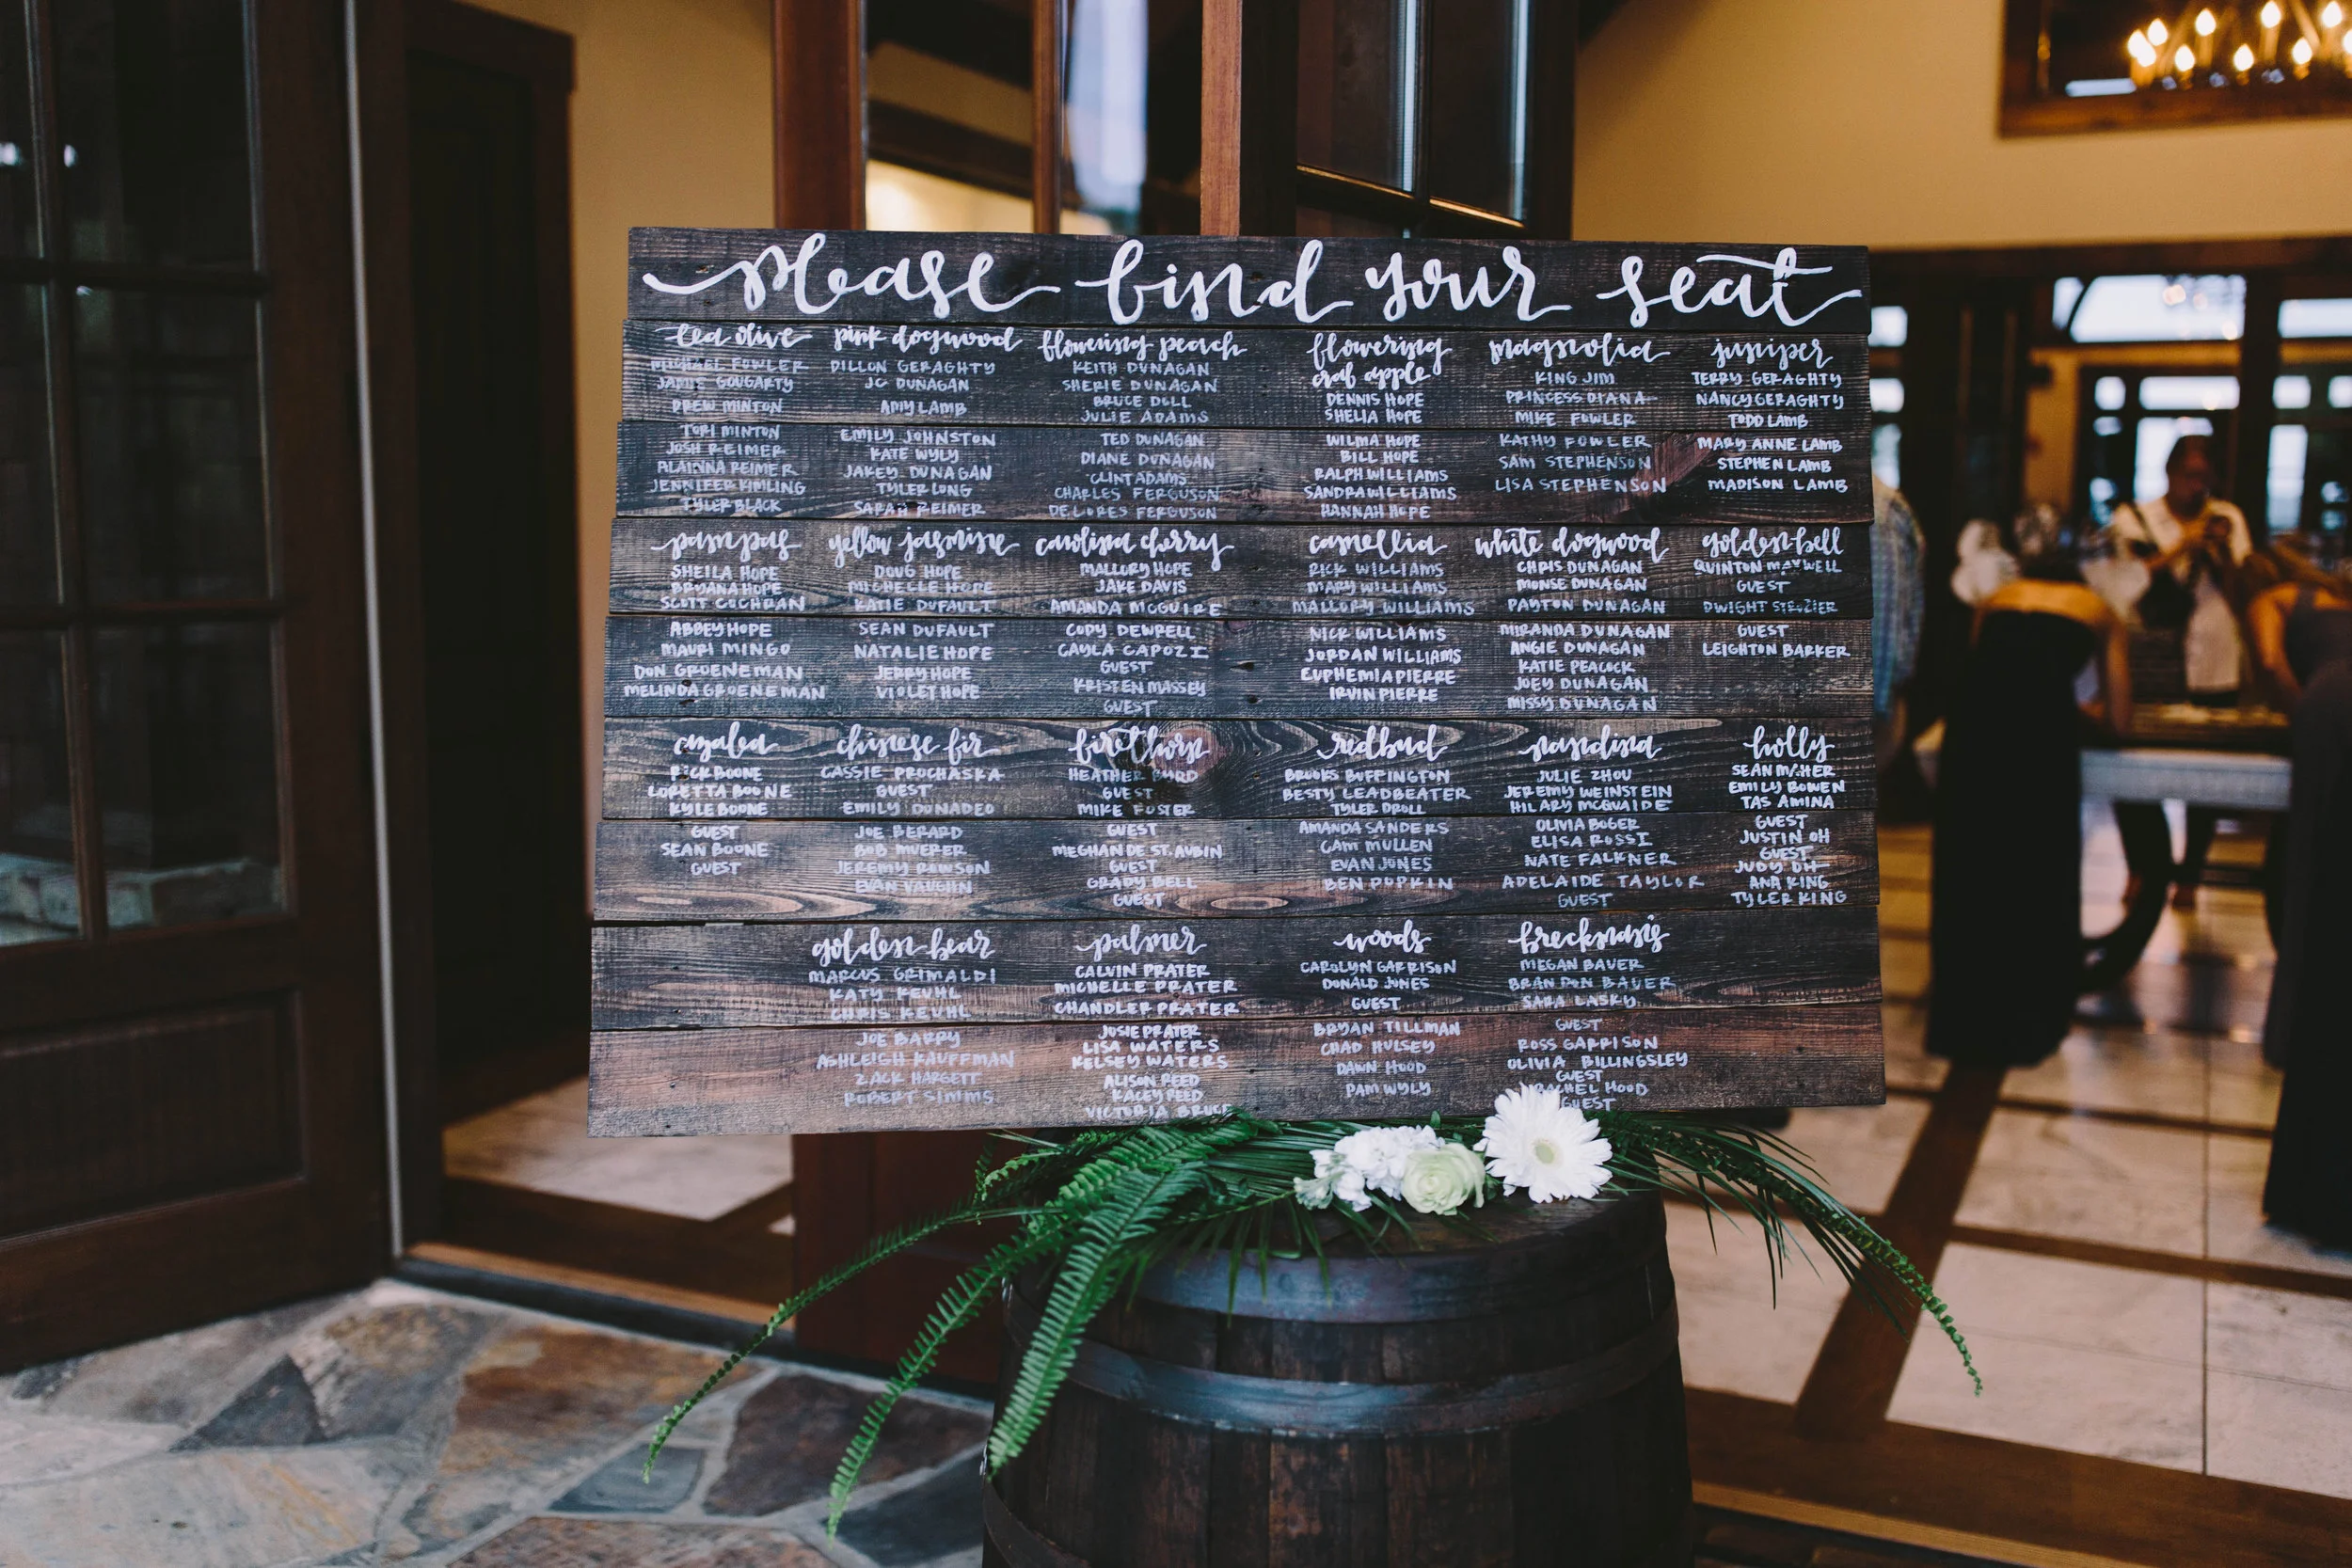 please find your seat
tea olive
MICHAEL FOWLER
JAMIE GOUGARTY
DREW MINTON
TORI MINTON
JOSH REIMER
ALAINNA REIMER
JENNIFER KIMLING
TYLER BLACK
pink dogwood
DILLON GERAGHTY
JC DUNAGAN
AMY LAMB
EMILY JOHNSTON
KATE WYLY
JAKEY DUNAGAN
TYLER LONG
SARAH REIMER
flowering peach
KEITH DUNAGAN
SHERIE DUNAGAN
BRUCE DULL
JULIE ADAMS
TED DUNAGAN
DIANE DUNAGAN
CLINT ADAMS
CHARLES FERGUSON
DELORES FERGUSON
flowering
crab apple
DENNIS HOPE
SHELIA HOPE
WILMA HOPE
BILL HOPE
RALPH WILLIAMS
SANDRA WILLIAMS
HANNAH HOPE
magnolia
KING JIM
PRINCESS DIANA
MIKE FOWLER
KATHY FOWLER
SAM STEPHENSON
LISA STEPHENSON
juniper
TERRY GERAGHTY
NANCY GERAGHTY
TODD LAMB
MARY ANNE LAMB
STEPHEN LAMB
MADISON LAMB
pampas
SHEILA HOPE
BRYANA HOPE
SCOTT COCHRAN
ABBEY HOPE
MAURI MINGO
DON GROENEMAN
MELINDA GROENEMAN
yellow jasmine
DOUG HOPE
MICHELLE HOPE
KATIE DUFAULT
SEAN DUFAULT
NATALIE HOPE
JERRY HOPE
VIOLET HOPE
carolina cherry
MALLORY HOPE
JAKE DAVIS
AMANDA MCGUIRE
CODY DEWRELL
CAYLA CAPOZI
GUEST
KRISTEN MASSEY
GUEST
camellia
RICK WILLIAMS
MARY WILLIAMS
MALLORY WILLIAMS
NICK WILLIAMS
JORDAN WILLIAMS
EUPHEMIA PIERRE
IRVIN PIERRE
white dogwood
CHRIS DUNAGAN
MONSE DUNAGAN
PAYTON DUNAGAN
MIRANDA DUNAGAN
ANGIE DUNAGAN
KATIE PEACOCK
JOEY DUNAGAN
MISSY DUNAGAN
golden bell
QUINTON MAXWELL
GUEST
DWIGHT STROZIER
GUEST
LEIGHTON BARKER
azalea
RICK BOONE
LORETTA BOONE
KYLE BOONE
GUEST
SEAN BOONE
GUEST
chinese fir
CASSIE PROCHASKA
GUEST
EMILY DONADEO
JOE BERARD
BOB MUERER
JEREMY ROWSON
EVAN VAUGHN
firethorn
HEATHER BYRD
GUEST
MIKE FOSTER
GUEST
MEGHAN DE ST. AUBIN
GUEST
GRADY BELL
GUEST
redbud
BROOKS BUFFINGTON
BESTY LEADBEATER
TYLER DROLL
AMANDA SANDERS
CAM MULLEN
EVAN JONES
BEN POPKIN
nandina
JULIE ZHOU
JEREMY WEINSTEIN
HILARY MCQUAIDE
OLIVIA BOGER
ELISA ROSSI
NATE FALKNER
ADELAIDE TAYLOR
GUEST
holly
SEAN MAHER
EMILY BOWEN
TAS AMINA
GUEST
JUSTIN OH
GUEST
JUDY OH
ANA KING
TYLER KING
golden bear
MARCUS GRIMALDI
KATY KEUHL
CHRIS KEUHL
JOE BARRY
ASHLEIGH KAUFFMAN
ZACK HARGETT
ROBERT SIMMS
palmer
CALVIN PRATER
MICHELLE PRATER
CHANDLER PRATER
JOSIE PRATER
LISA WATERS
KELSEY WATERS
ALISON REED
KACEY REED
VICTORIA BRUCE
woods
CAROLYN GARRISON
DONALD JONES
GUEST
BRYAN TILLMAN
CHAD HULSEY
DAWN HOOD
PAM WYLY
brecknasis
MEGAN BAUER
BRANDON BAUER
SARA LASKY
GUEST
ROSS GARRISON
OLIVIA BILLINGSLEY
GUEST
RACHEL HOOD
GUEST